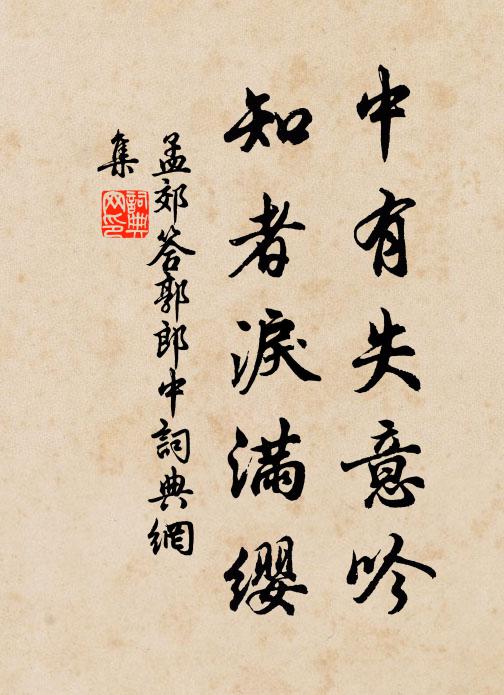 中有失意吟
知者淚滿纓
孟郊答郭郎中詞典網
集
詞典
网印